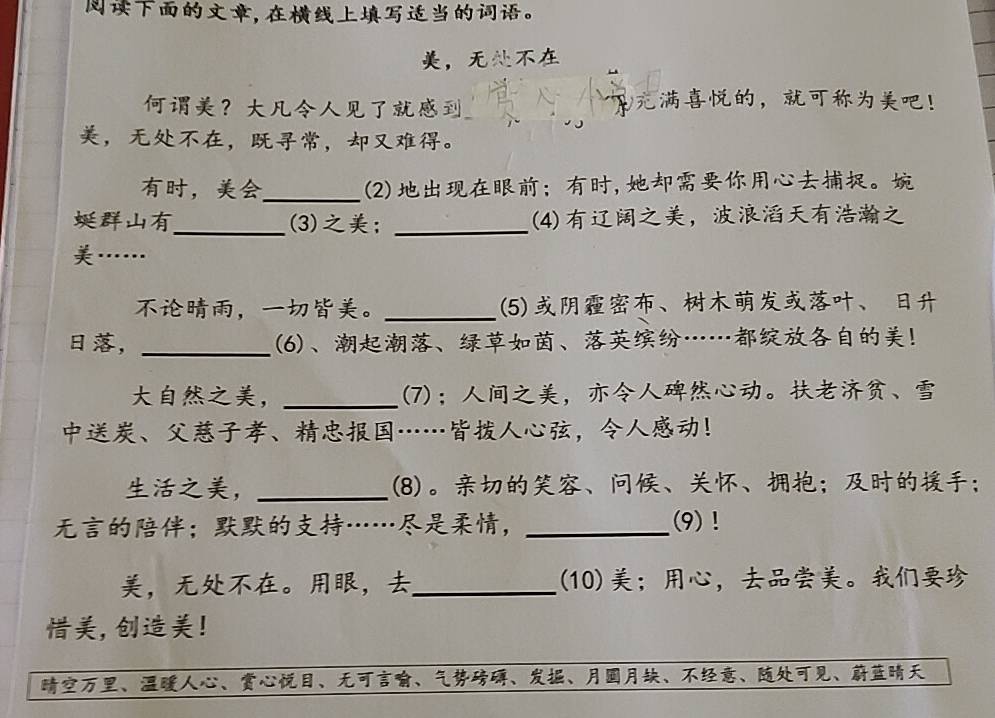 阅读下面的文章,在横线上填写适当的词语。
美，无处不在
何谓美？大凡令人见了就感到 赏心 充满喜悦的，就可称为美吧！
美，无处不在，既寻常，却又难得。
有时，美会________(2)地出现在眼前；有时,她却需要你用心去捕捉。蜿
蜒群山有________(3)之美；________(4)有辽阔之美，波浪滔天有浩瀚之
美……
不论晴雨，一切皆美。________(5)或阴霾密布、树木萌发或落叶、 日升
日落，________(6)、潮起潮落、绿草如茵、落英缤纷……都绽放各自的美！
大自然之美，________(7)；人间之美，亦令人砰然心动。扶老济贫、雪
中送炭、父慈子孝、精忠报国……皆拨人心弦，令人感动！
生活之美，________(8)。亲切的笑容、问候、关怀、拥抱；及时的援手；
无言的陪伴；默默的支持……尽是柔情，________(9)！
美，无处不在。用眼，去________(10)美；用心，去品尝美。我们要珍
惜美,创造美！
晴空万里、温暖人心、赏心悦目、无可言喻、气势磅礴、发掘、月圆月缺、不经意、随处可见、蔚蓝晴天